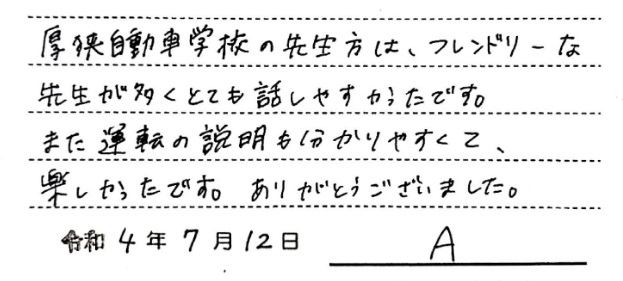 厚狭自動車学校の先生方は、フレンドリーな
先生が多くとても話しやすかったです。
また運転の説明も分かりやすくて、
楽しかったです。ありがとうございました。
令和4年7月12日 A